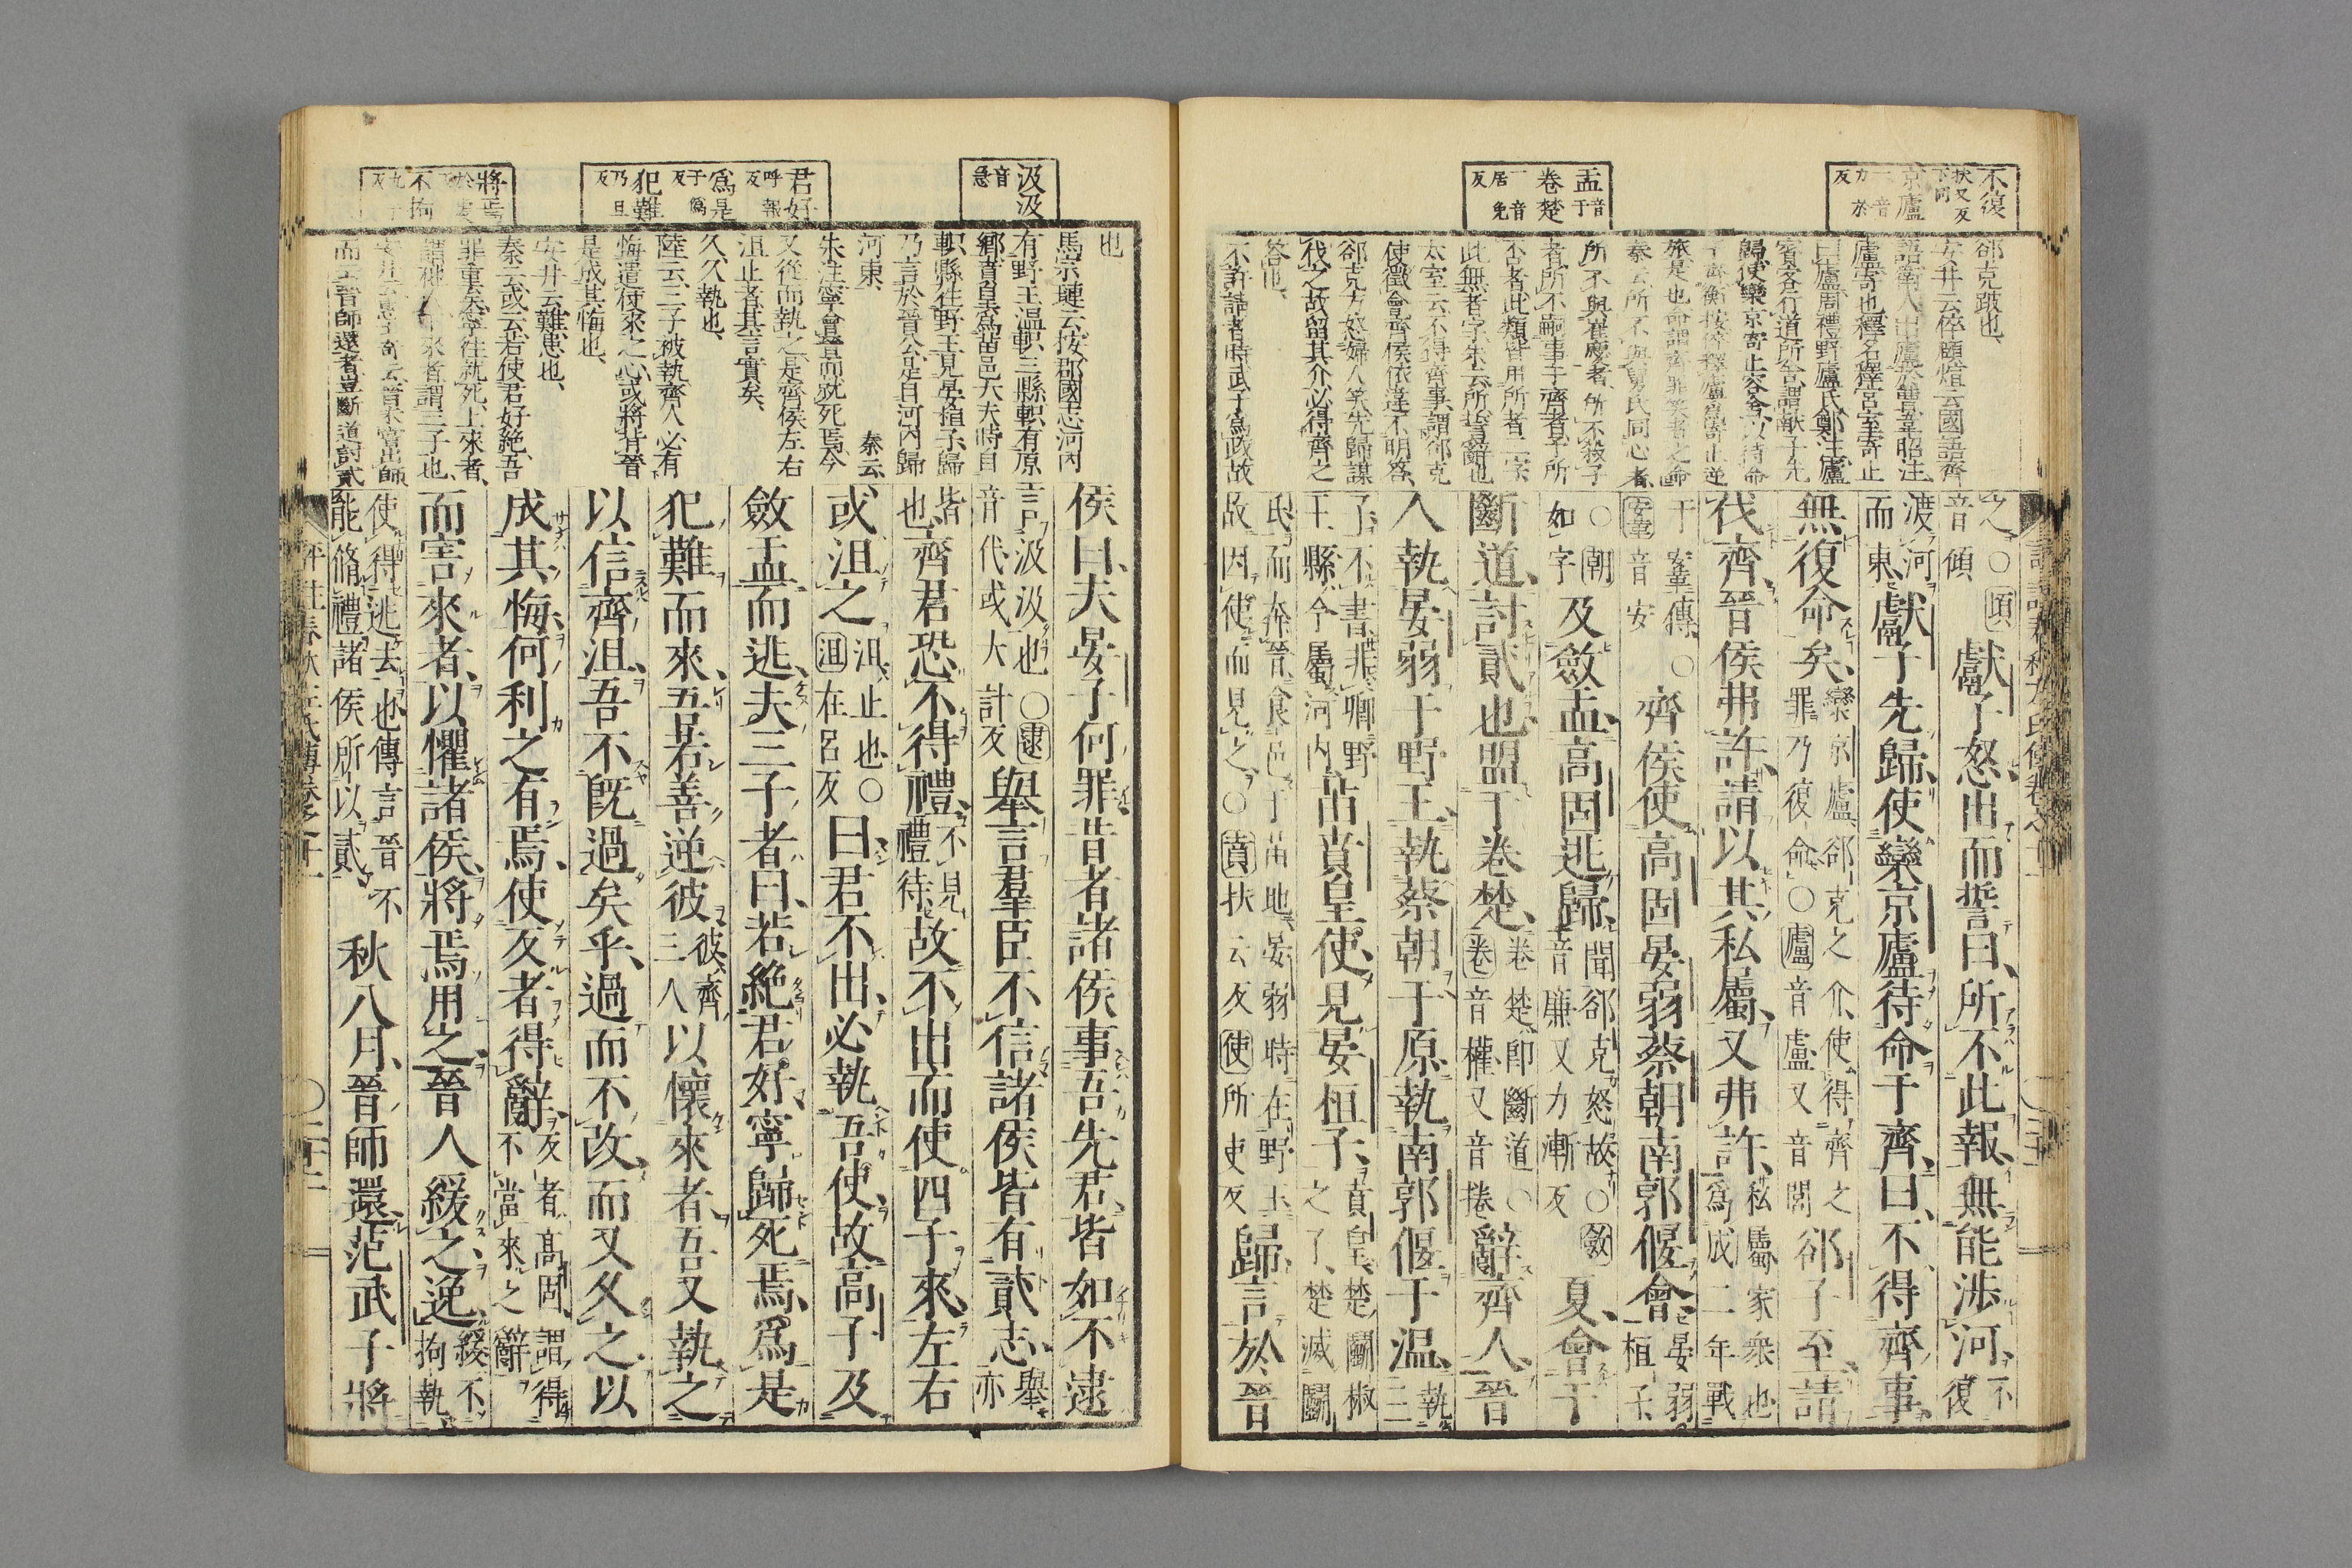 不復 扶又反下同
京廬 一音力於反
盂 音于
卷楚 一音居免反
郤克跛也
安井云倅頤煊云國語齊
語衞人出廬於曹韋昭注
廬寄也釋名釋宮室寄止
曰廬周禮野廬氏鄭注廬
賓客行道所舍謂獻子先
歸使欒京寄止客舍以待命
所不與崔慶者所不殺子
者所不嗣事于齊者予所
否者此類皆用所者二字
此無者字朱云所誓辭也
太室云不得齊事謂郤克
使徵會齊侯依違不明答
郤克方怒婦人笑先歸謀
伐之故留其介必得齊之
答也
不許請者時武子爲政故
之○頃音傾獻子怒出而誓曰所不此報無能涉河不復
渡河而東獻子先歸使欒京廬待命于齊曰不得齊事
無復命矣欒京廬郤克之介使得齊之罪乃復命○廬音盧又音閭郤子至請
伐齊晉侯弗許請以其私屬又弗許私屬家衆也爲成二年戰
于鞌傳○鞌音安齊侯使高固晏弱蔡朝南郭偃會晏弱桓子
○朝如字及斂盂高固逃歸聞郤克怒故○斂音廉又力漸反夏會于
斷道討貳也盟于卷楚卷楚卽斷道○卷音權又音捲辭齊人晉
人執晏弱于野王執蔡朝于原執南郭偃于温執三
子不書非卿野王縣今屬河內苗賁皇使見晏桓子賁皇楚鬬椒之子楚滅鬬
氏而奔晉食邑于苗地晏弱時在野王故因使而見之○賁扶云反使所吏反歸言於晉
汲汲 音急
君好 呼報反
爲是 于僞反
犯難 乃旦反
將焉 於虔反
不拘 九于反
也
馬宗璉云按郡國志河內
有野王温軹三縣軹有原
鄉賁皇爲苗邑大夫時自
軹縣往野王見晏桓子歸
乃言於晉公是自河內歸
河東 秦云
朱注寧會晉而就死焉今
又從而執之是齊侯左右
沮止者其言實矣
久久執也
陸云三子被執齊人必有
悔遣使來之心或將背晉
是成其悔也
安井云難患也
秦云或云若使君好絶吾
罪重矣寧往就死上來者
謂彼下來者謂三子也
而云晉師還者豈斷道討貳
侯曰夫晏子何罪昔者諸侯事吾先君皆如不逮
言汲汲也○逮音代或大計反舉言羣臣不信諸侯皆有貳志舉亦
皆也齊君恐不得禮不見禮待故不出而使四子來左右
或沮之沮止也○沮在呂反曰君不出必執吾使故高子及
斂盂而逃夫三子者曰若絶君好寧歸死焉爲是
犯難而來吾若善逆彼彼齊三人以懷來者吾又執之
以信齊沮吾不旣過矣乎過而不改而又久之以
成其悔何利之有焉使反者得辭反者高固謂得不當來之辭
而害來者以懼諸侯將焉用之晉人緩之逸緩不拘執
使得逃去也傳言晉不能脩禮諸侯所以貳秋八月晉師還范武子將
評註春秋左氏傳卷之十一